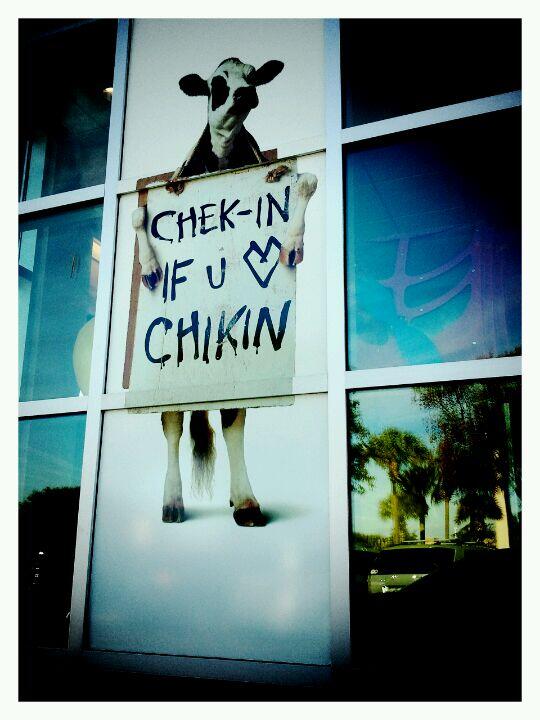 CHEK-IN
IF U ♡
CHIKIN